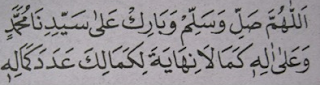 اَللّٰهُمَّ صَلِّ وَسَلِّمْ وَبَارِكْ عَلٰى سَيِّدِنَا مُحَمَّدٍ
وَعَلٰى اٰلِهٖ كَمَا لَا نِهَايَةَ لِكَمَالِكَ عَدَدَ كَمَالِهٖ